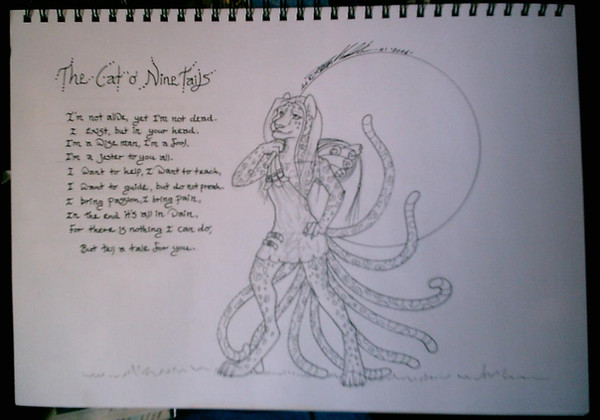 The Cat o' Nine Tails
I'm not alive, yet I'm not dead.
I exist, but in your head.
I'm a Wise man, I'm a fool,
I'm a jester to you all.
I want to help, I want to teach,
I want to guide, but do not preach.
I bring passion, I bring pain,
In the end it's all in vain,
For there is nothing I can do,
But tell a tale for you.